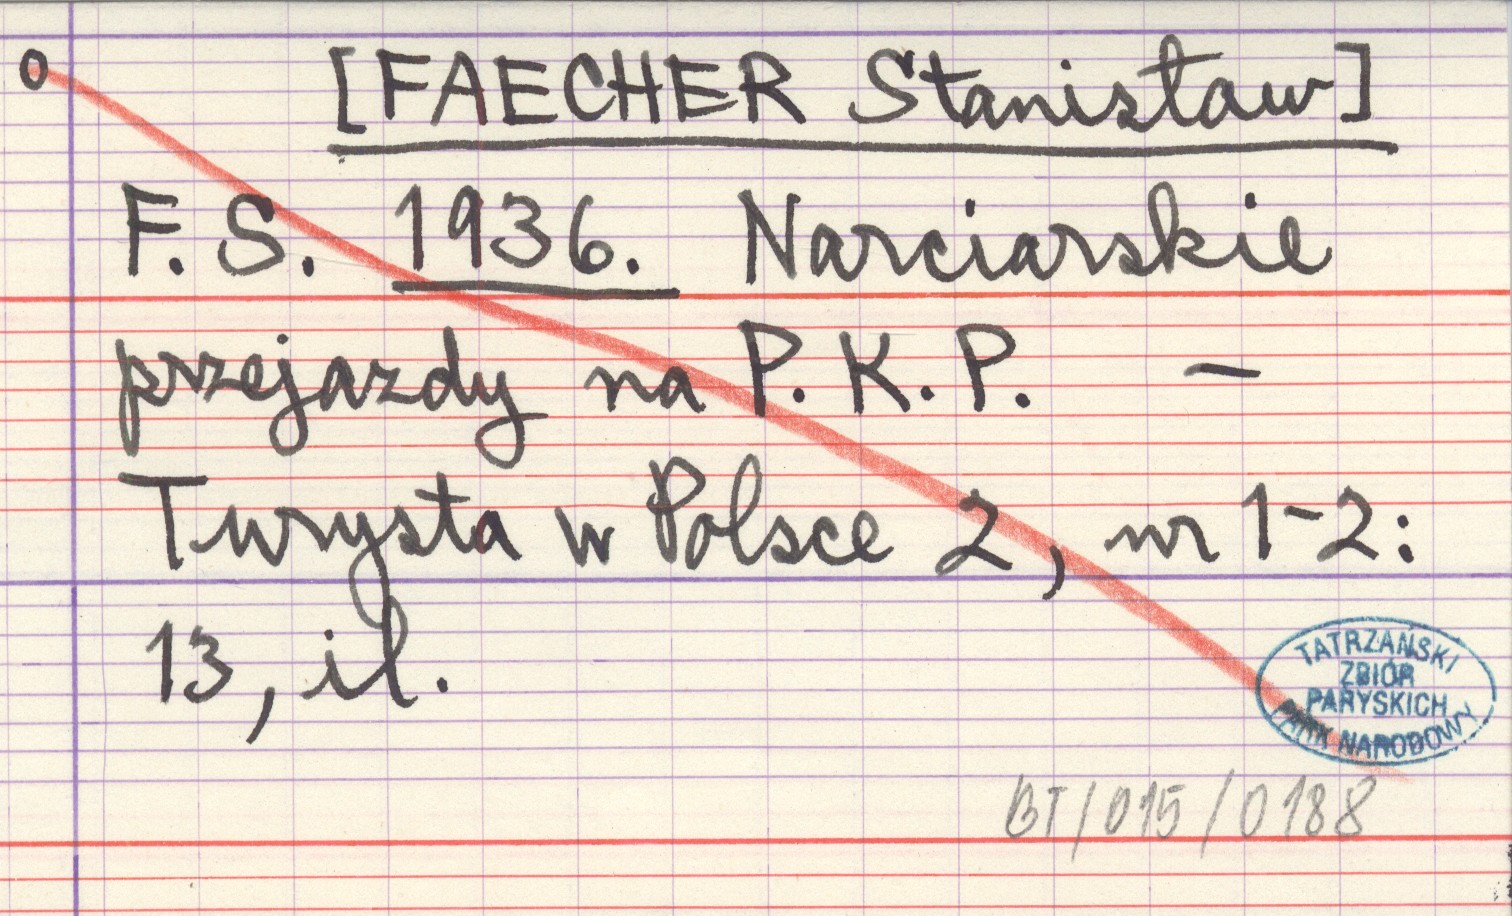 o [FAECHER Stanisław]
F. S. 1936. Narciarskie
przejazdy na P. K. P. –
Turysta w Polsce 2, nr 1-2:
13, il.
TATRZAŃSKI
ZBIÓR
PARYSKICH
PARK NARODOWY
BT/015/0188